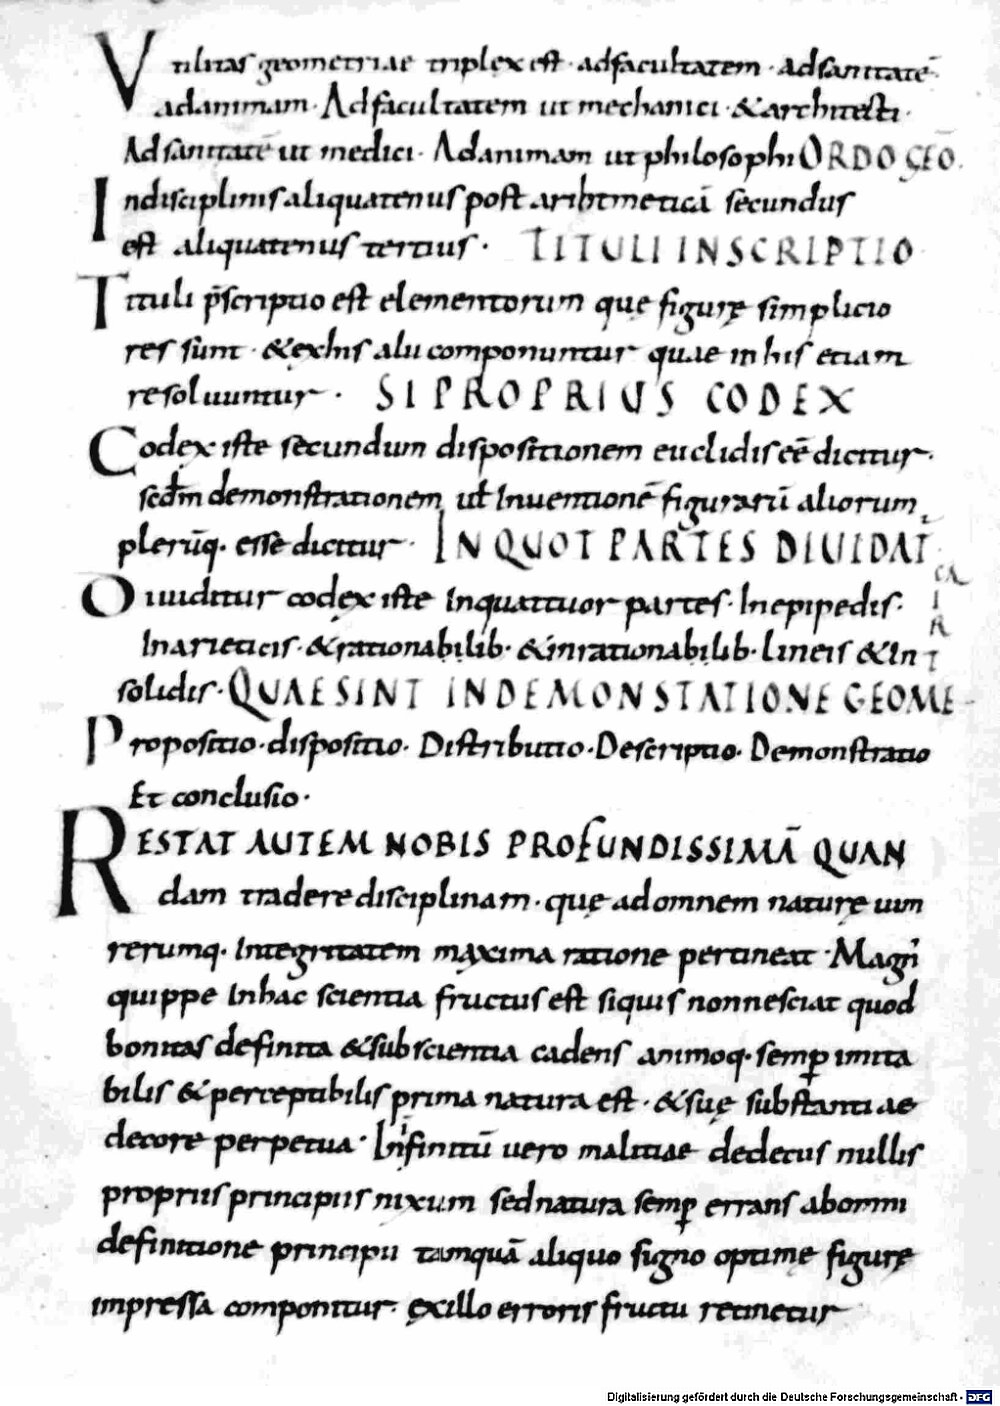 Vtilitas geometriae triplex est · adfacultatem · adsanitatē·
adanimam · Adfacultatem ut mechanici · &architecti ·
Adsanitatē ut medici · Adanimam ut philosophi ORDO GEO.
Indisciplinis aliquatenus post arithmeticā secundus
est aliquatenus tertius · TITULI INSCRIPTIO
Tituli p̄scriptio est elementorum quę figurę simplicio
res sunt · &exhis alii componuntur quae in his etiam
resoluuntur · SI PROPRIUS CODEX
Codex iste secundum dispositionem euclidis eē dicitur·
scdm̄ demonstrationem ut Inuentionē figurarū aliorum
plerūq· esse dicitur · IN QUOT PARTES DIUIDAT
Diuiditur codex iste Inquattuor partes · Inepipedis·
Inarieticis · &rationabilib· &inrationabilib· Lineis &In
solidis · QUAE SINT IN DEMONSTATIONE GEOME
Propositio · dispositio · Distributio · Descriptio · Demonstratio
Et conclusio ·
RESTAT AUTEM NOBIS PROFUNDISSIMĀ QUAN
dam tradere disciplinam · quę adomnem naturę uim
rerumq· Integritatem maxima ratione pertineat · Magn
quippe Inhac scientia fructus est siquis nonnesciat quod
bonitas definita &subscientia cadens animoq· semp imita
bilis &perceptibilis prima natura est · &suę substantiae
decore perpetua · Infinitū uero malitiae dedecus nullis
propriis principiis nixum sednatura semp errans aboni
definitione principii tamquā aliquo signo optimę figurę
impressa componitur · exillo erroris fructu retinetur
Digitalisierung gefördert durch die Deutsche Forschungsgemeinschaft - DFG